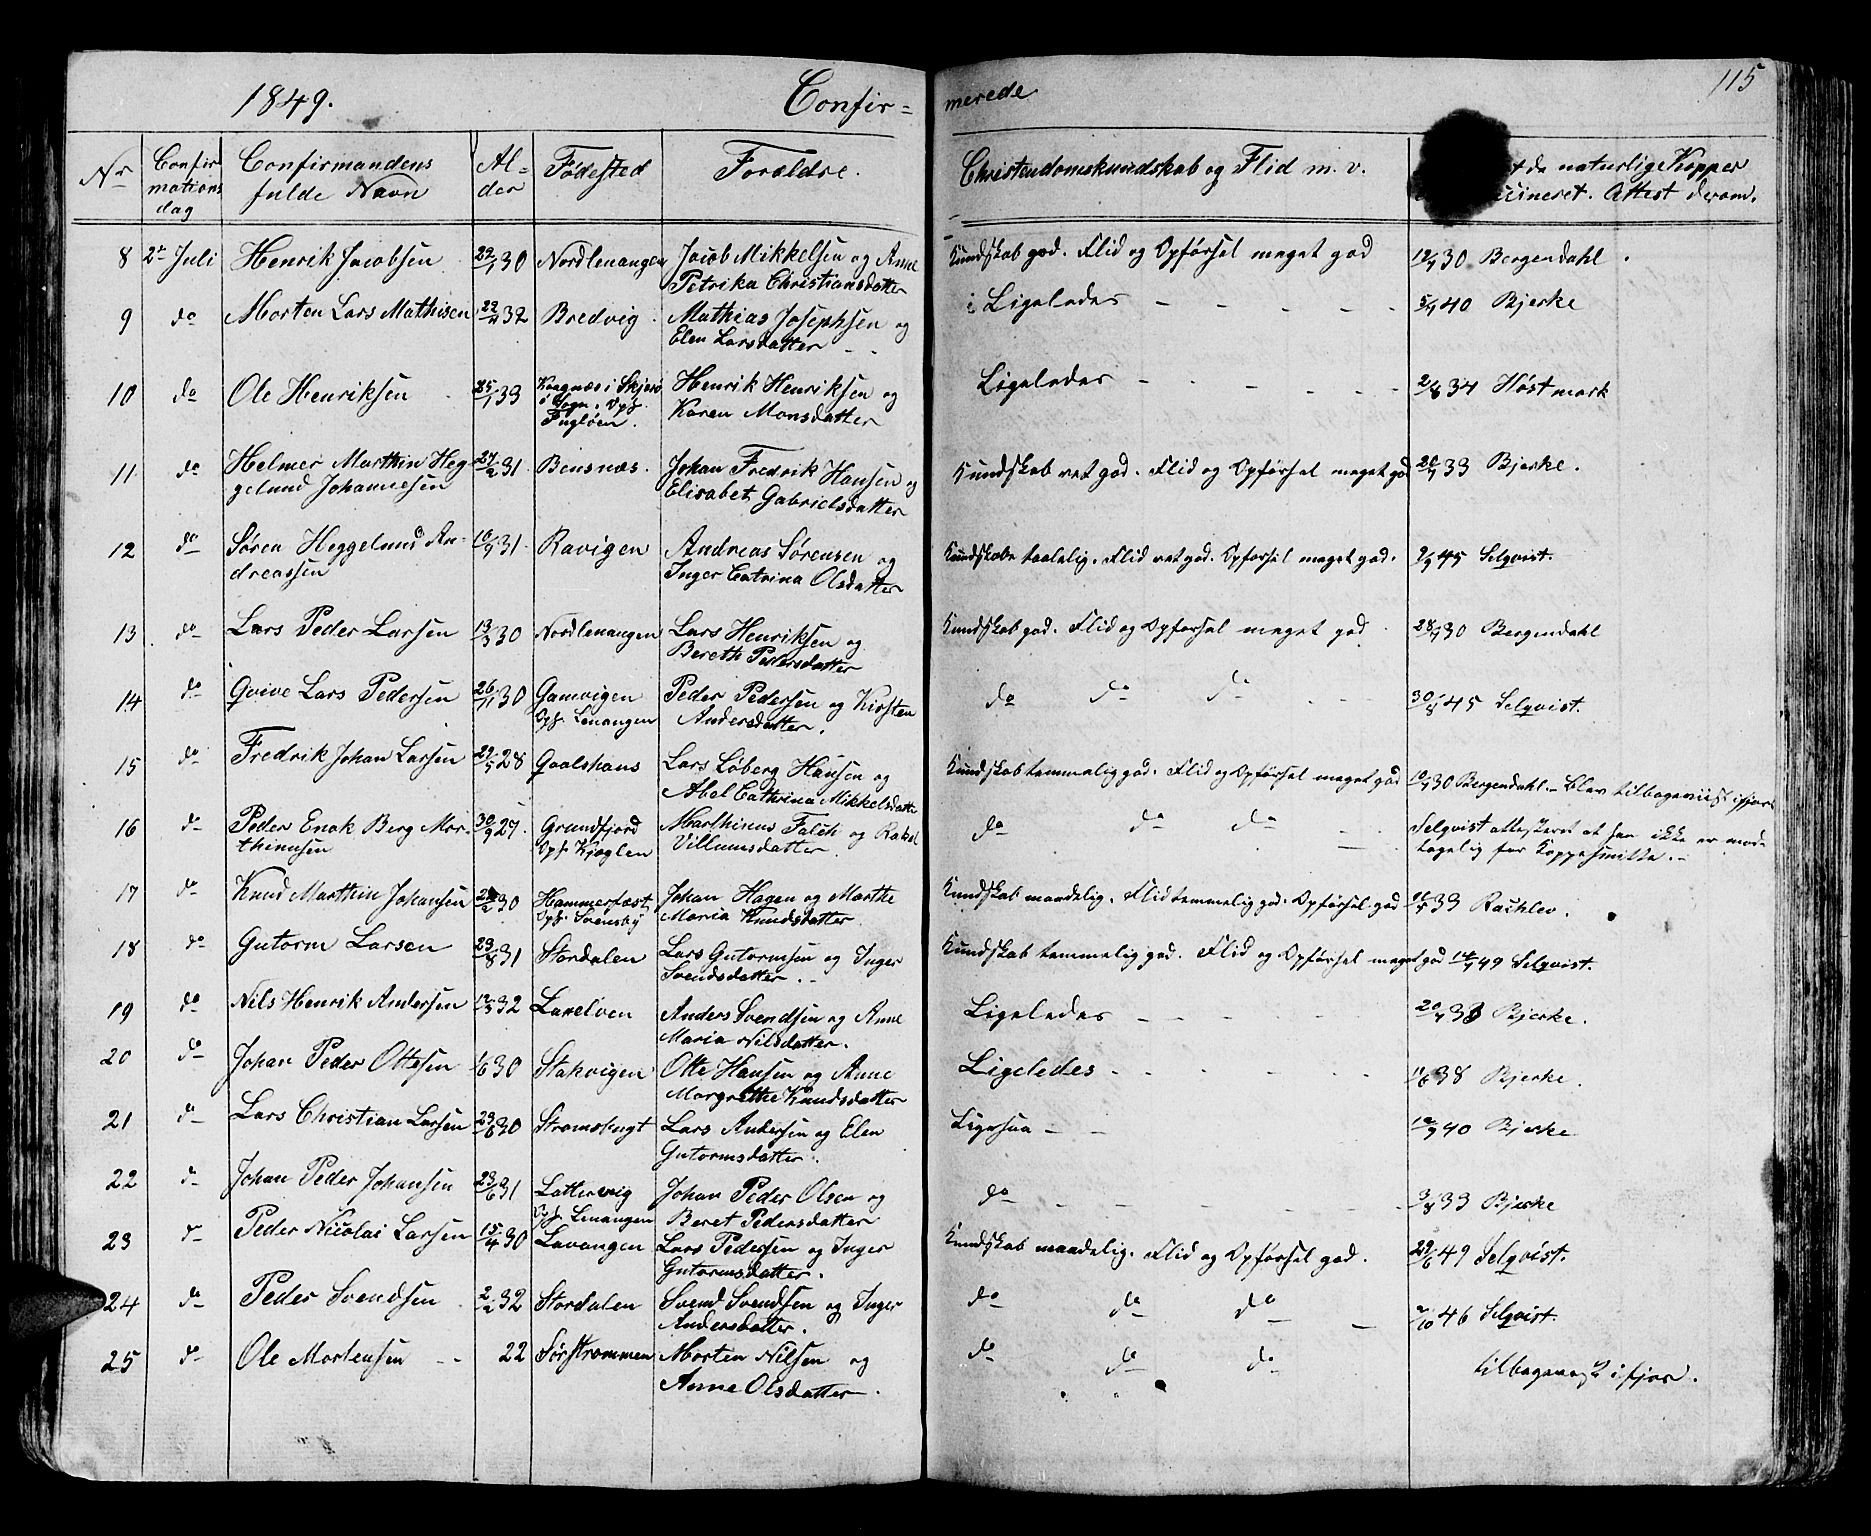 1849. Confir=
merede 115
Nr Confirmations dag Confirmandens fulde Navn Alder Fødested Forældre. Christendomskundskab og Flid m. v. de naturlige Kopper
cineret. Attest derom.
8 2n Juli Henrik Jacobsen 29/1 30 Nordlenangen Jacob Mikkelsen og Anne Kundskab god. Flid og Opførsel meget god 12/7 30 Bergendahl.
Petrika Christiansdatter
9 do Morten Lars Mathisen 22/11 32 Bredvig Mathias Josephsen og Ligeledes 5/7 40 Bjerke
Elen Larsdatter
10 do Ole Henriksen 25/1 33 Kaagnæs i Skjervø Henrik Henriksen og Ligeledes 2/8 34 Høstmark
Sogn. Opf. Karen Monsdatter
Fugløen.
11 do Helmer Marthin Heg 27/2 31. Bensnæs. Johan Fredrik Hansen og Kundskab ret god. Flid og Opførsel meget god 20/7 33 Bjerke.
gelund Johannesen Elisabet Gabrielsdatter
12 do Søren Heggelund An- 10/9 31. Ravigen Andreas Sørensen og Kundskab taalelig. Flid ret god. Opførsel meget god. 2/9 45 Selqvist.
dreassen Inger Catrina Olsdatter
13 do Lars Peder Larsen 13/3 30 Nordlenangen Lars Henriksen og Kundskab god. Flid og Opførsel meget god 28/7 30 Bergendahl
Bereth Pedersdatter
14 do Qvive Lars Pedersen 26/11 30 Gamvigen Peder Pedersen og Kirsten do do do 30/8 45 Selqvist.
Opf. Lenangen Andersdatter.
15 do Fredrik Johan Larsen 29/5 28 Gaalshans Lars Løberg Hansen og Kundskab temmelig god. Flid og Opførsel meget god 10/7 30 Bergendahl. Blev tilbageviist ifjor
Abel Cathrina Mikkelsdatter
16 do Peder Enok Berg Mar- 30/9 27. Grundfjord Marthinus Falch og Rakel do do do Selqvist attesteret at han ikke er mod-
thinussen Opf. Kjoglen Villumsdatter tagelig for Koppesmitte.
17 do Knud Marthin Johansen 2/2 30 Hammerfæst Johan Hagen og Marthe Kundskab maadelig. Flid temmelig god. Opførsel god 33 Rachlev.
Opf. Svensby Maria Knudsdatter
18 do Gutorm Larsen 23/8 31 Stordalen Lars Gutormsen og Inger Kundskab temmelig god. Flid og Opførsel meget god 14/7 49 Selqvist.
Svendsdatter.
19 do Nils Henrik Andersen 12/5 32 Laxelven Anders Svendsen og Anne Ligeledes 20/7 33 Bjerke.
Maria Nilsdatter.
20 do Johan Peder Ottesen 1/6 30 Stakvigen Otte Hansen og Anne Ligeledes 11/6 38 Bjerke.
Margrethe Knudsdatter
21 do Lars Christian Larsen 23/6 30 Stromsbugt Lars Andersen og Elen Ligesaa 12/9 40 Bjerke
Gutormsdatter.
22 do Johan Peder Johansen 23/6 31 Lattervig Johan Peder Olsen og do 3/8 33 Bjerke
Opf. Lenangen Beret Pedersdatter
23 do Peder Nicolai Larsen 15/4 30 Lavangen Lars Pedersen og Inger Kundskab maadelig. Flid og Opførsel god. 29/6 49 Selqvist.
Gutormsdatter.
24 do Peder Svendsen 2/2 32 Stordalen Svend Svendsen og Inger do do do 2/10 46 Selqvist.
Andersdatter.
25 do Ole Mortensen 22 Sørstrommen Morten Nilsen og do do do tilbagevist ifjor.
Anne Olsdatter.